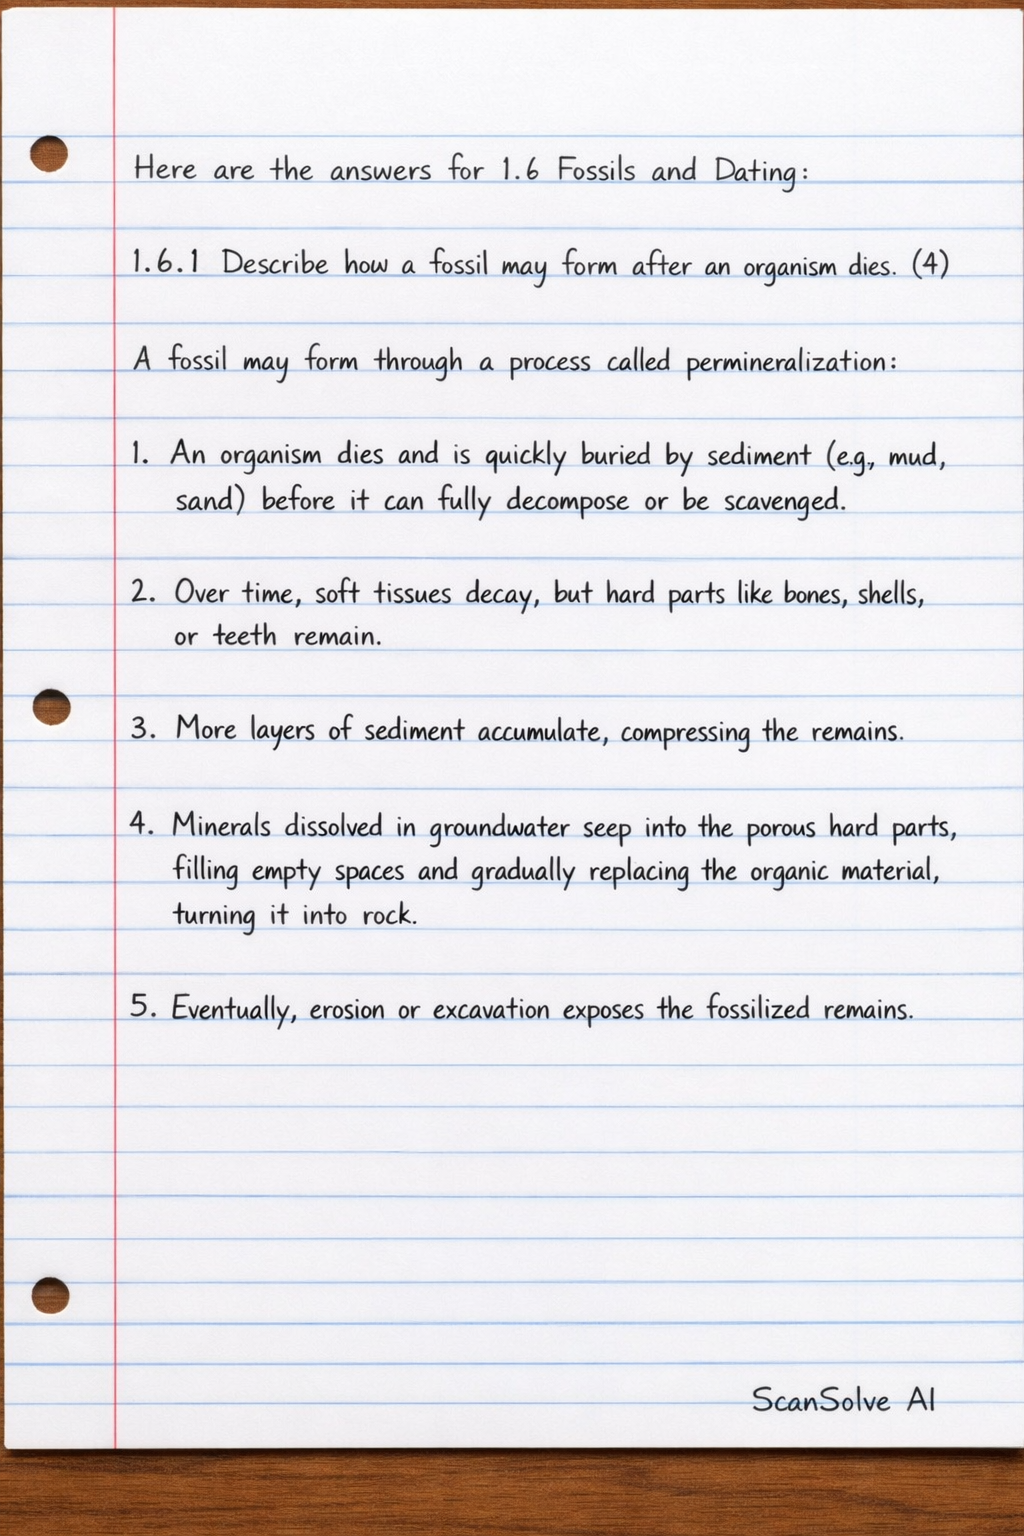 Here are the answers for 1.6 Fossils and Dating:
1.6.1 Describe how a fossil may form after an organism dies. (4)
A fossil may form through a process called permineralization:
1. An organism dies and is quickly buried by sediment (e.g., mud,
sand) before it can fully decompose or be scavenged.
2. Over time, soft tissues decay, but hard parts like bones, shells,
or teeth remain.
3. More layers of sediment accumulate, compressing the remains.
4. Minerals dissolved in groundwater seep into the porous hard parts,
filling empty spaces and gradually replacing the organic material,
turning it into rock.
5. Eventually, erosion or excavation exposes the fossilized remains.
ScanSolve AI